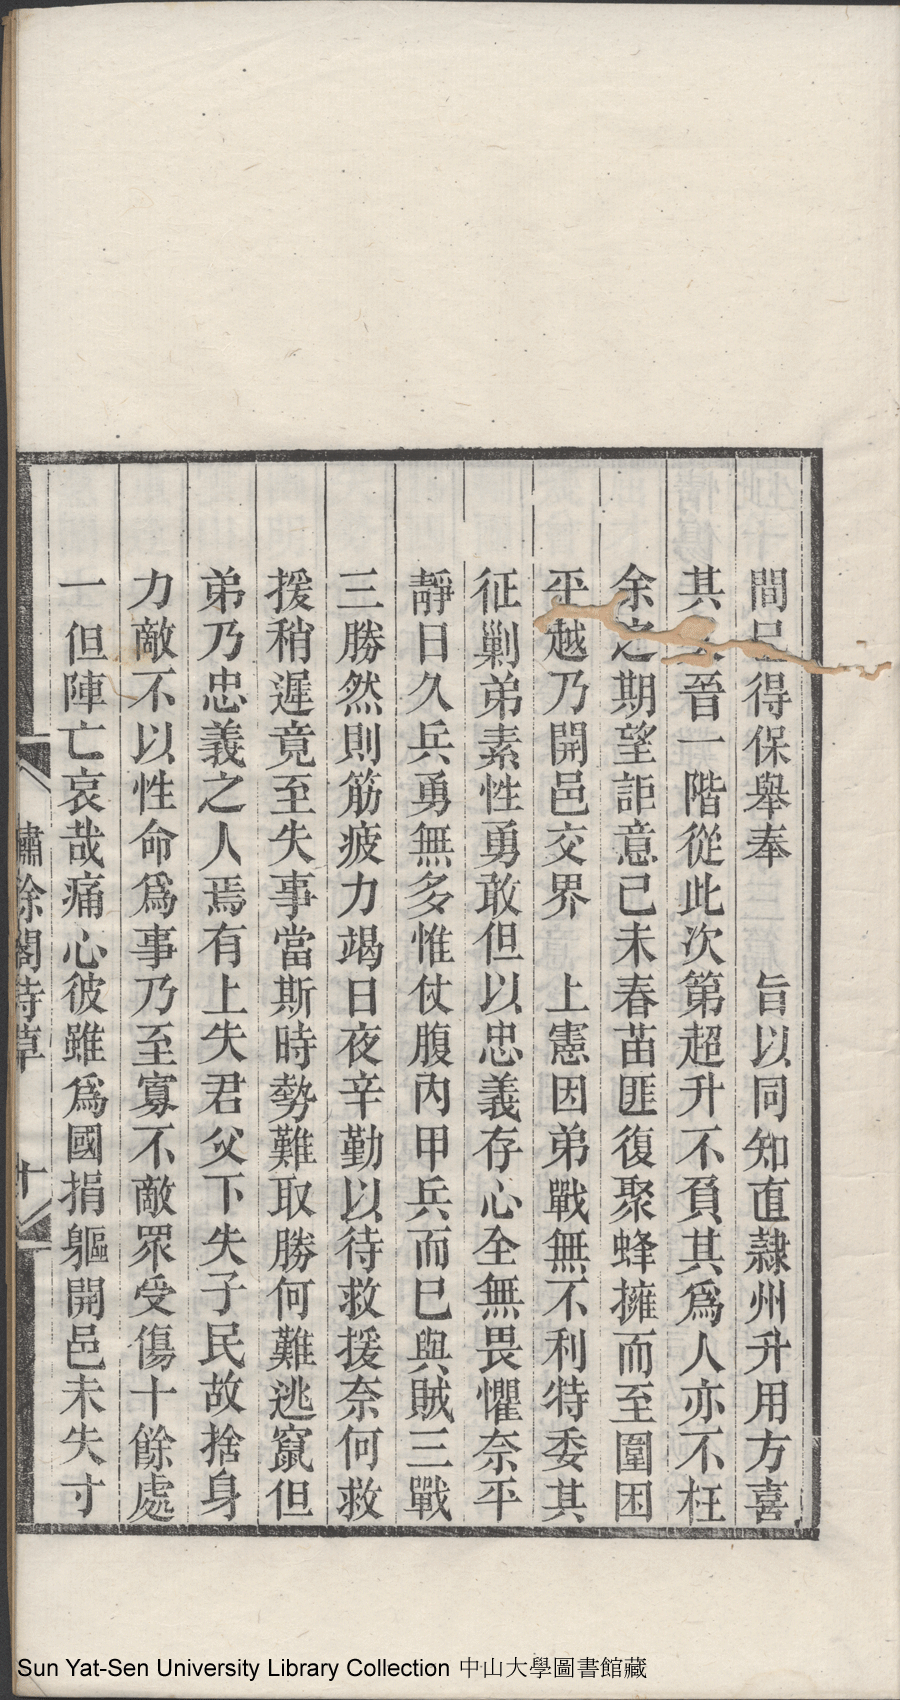 間得保舉奉　　旨以同知直隷州升用方喜
其晉一階從此次第超升不負其爲人亦不枉
余之期望詎意己未春苗匪復聚蜂擁而至圍困
平越乃開邑交界　上憲因弟戰無不利特委其
征剿弟素性勇敢但以忠義存心全無畏懼奈平
靜日久兵勇無多惟仗腹內甲兵而巳與賊三戰
三勝然則筋疲力竭日夜辛勤以待救援奈何救
援稍遲竟至失事當斯時勢難取勝何難逃竄但
弟乃忠義之人焉有上失君父下失子民故捨身
力敵不以性命爲事乃至寡不敵眾受傷十餘處
一但陣亡哀哉痛心彼雖爲國捐軀開邑未失寸
繡餘閣詩草
十
Sun Yat-Sen University Library Collection 中山大學圖書館藏